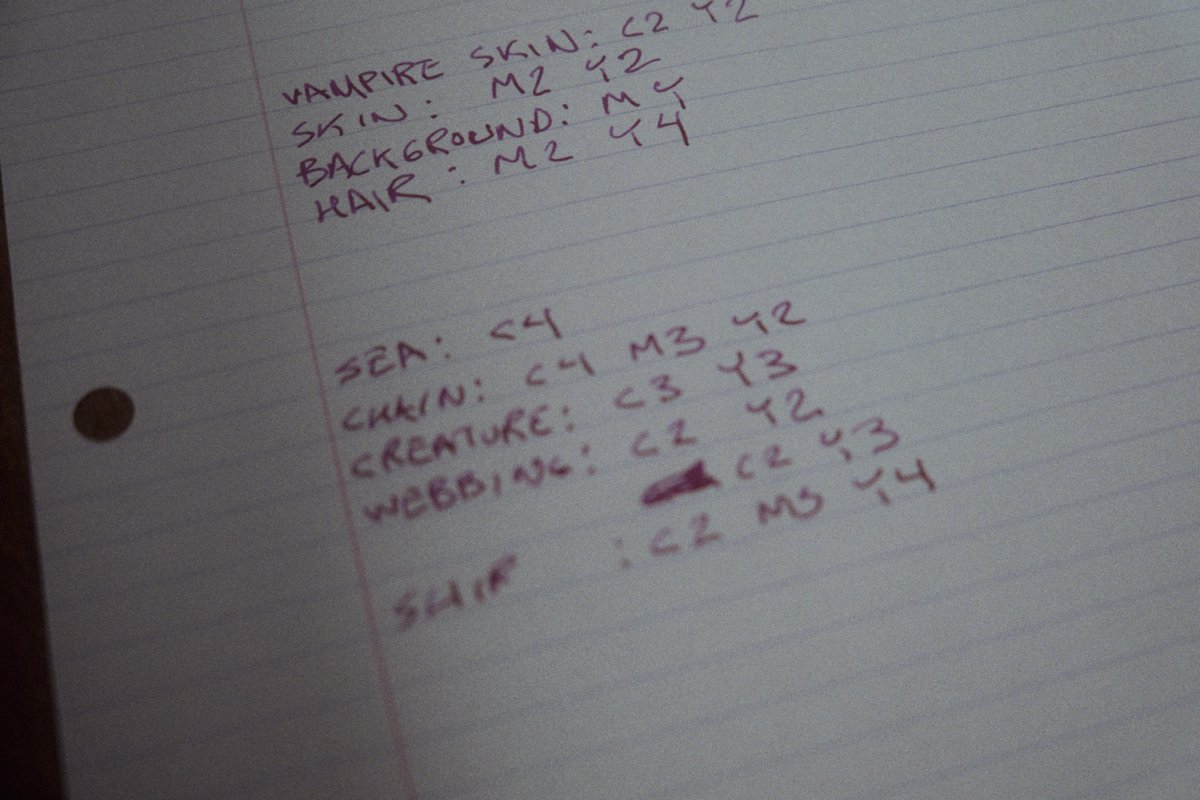 VAMPIRE SKIN: C2 Y2
SKIN: M2 Y2
BACKGROUND: M Y
HAIR: M2 Y4
SEA: C4
CHAIN: C4 M3 Y2
CREATURE: C3 Y3
WEBBING: C2 Y2
C2 Y3
: C2 M3 Y4